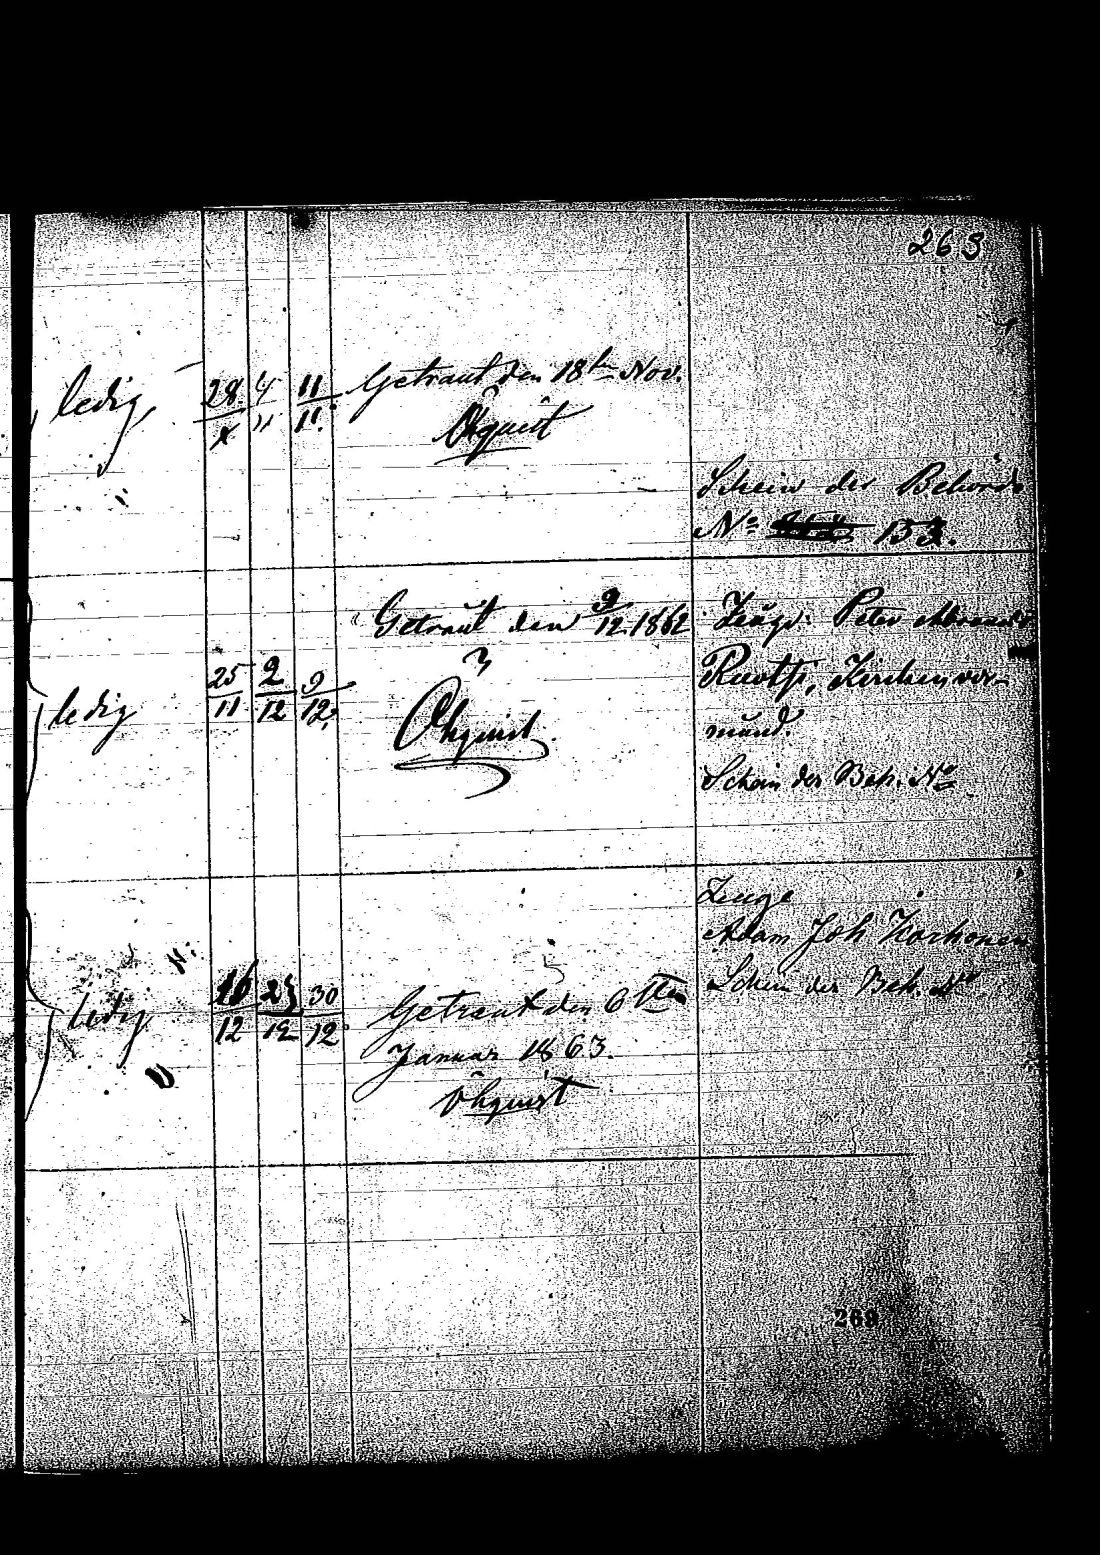 263
ledig,
28/X 4/11 11/11.
Getraut den 18ten Nov.
Öhquist
Schein der Behörde
No 153.
ledig
25/11 2/12 9/12,
Getraut den 9/12 1862
Öhquist.
Zeuge: Peter
Ruotsi, Kirchenvor-
mund.
Schein der Beh. No
ledig
16/12 27/12 30/12
Getraut den 6ten
Januar 1863.
Öhquist
Zeuge
Adam Joh Korhonen
Schein der Beh. No
269